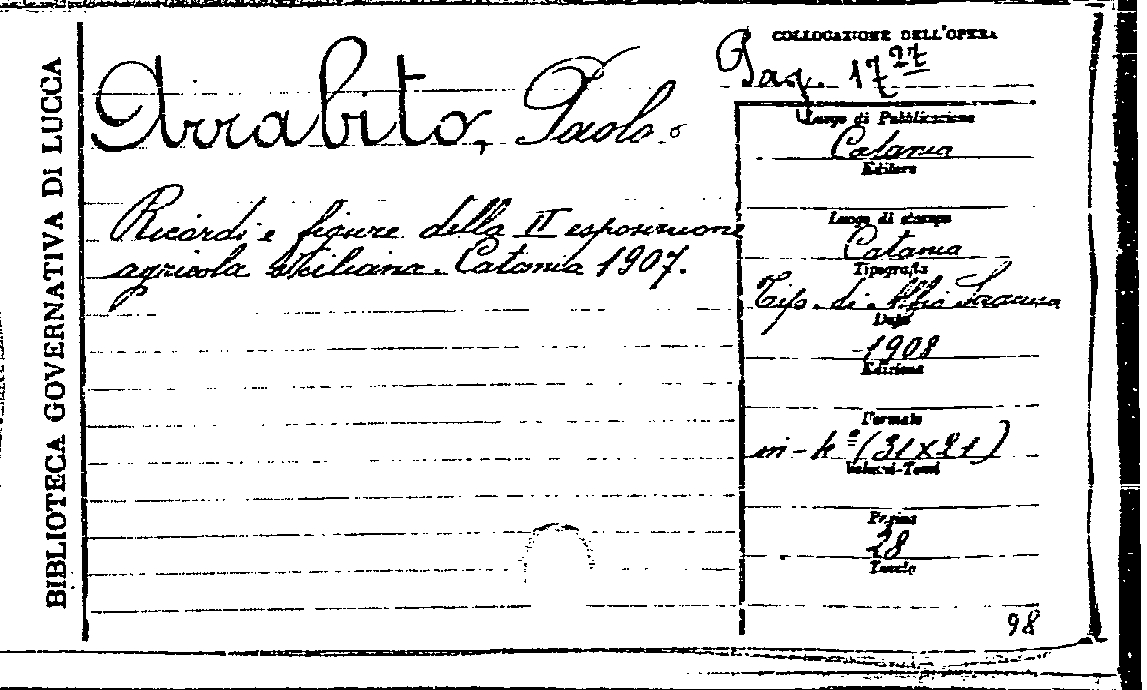 BIBLIOTECA GOVERNATIVA DI LUCCA
Arrabito, Paolo.
Ricordi e figure della II esposizione
agricola siciliana. Catania 1907.
COLLOCAZIONE DELL'OPERA
17 27
Luogo di Pubblicazione
Catania
Editore
Luogo di stampa
Catania
Tipografia
Tip. di Alfio
Data
1908
Edizione
Formato
in-4° (31x21)
Volumi-Tomi
Pagine
28
Tavole
98